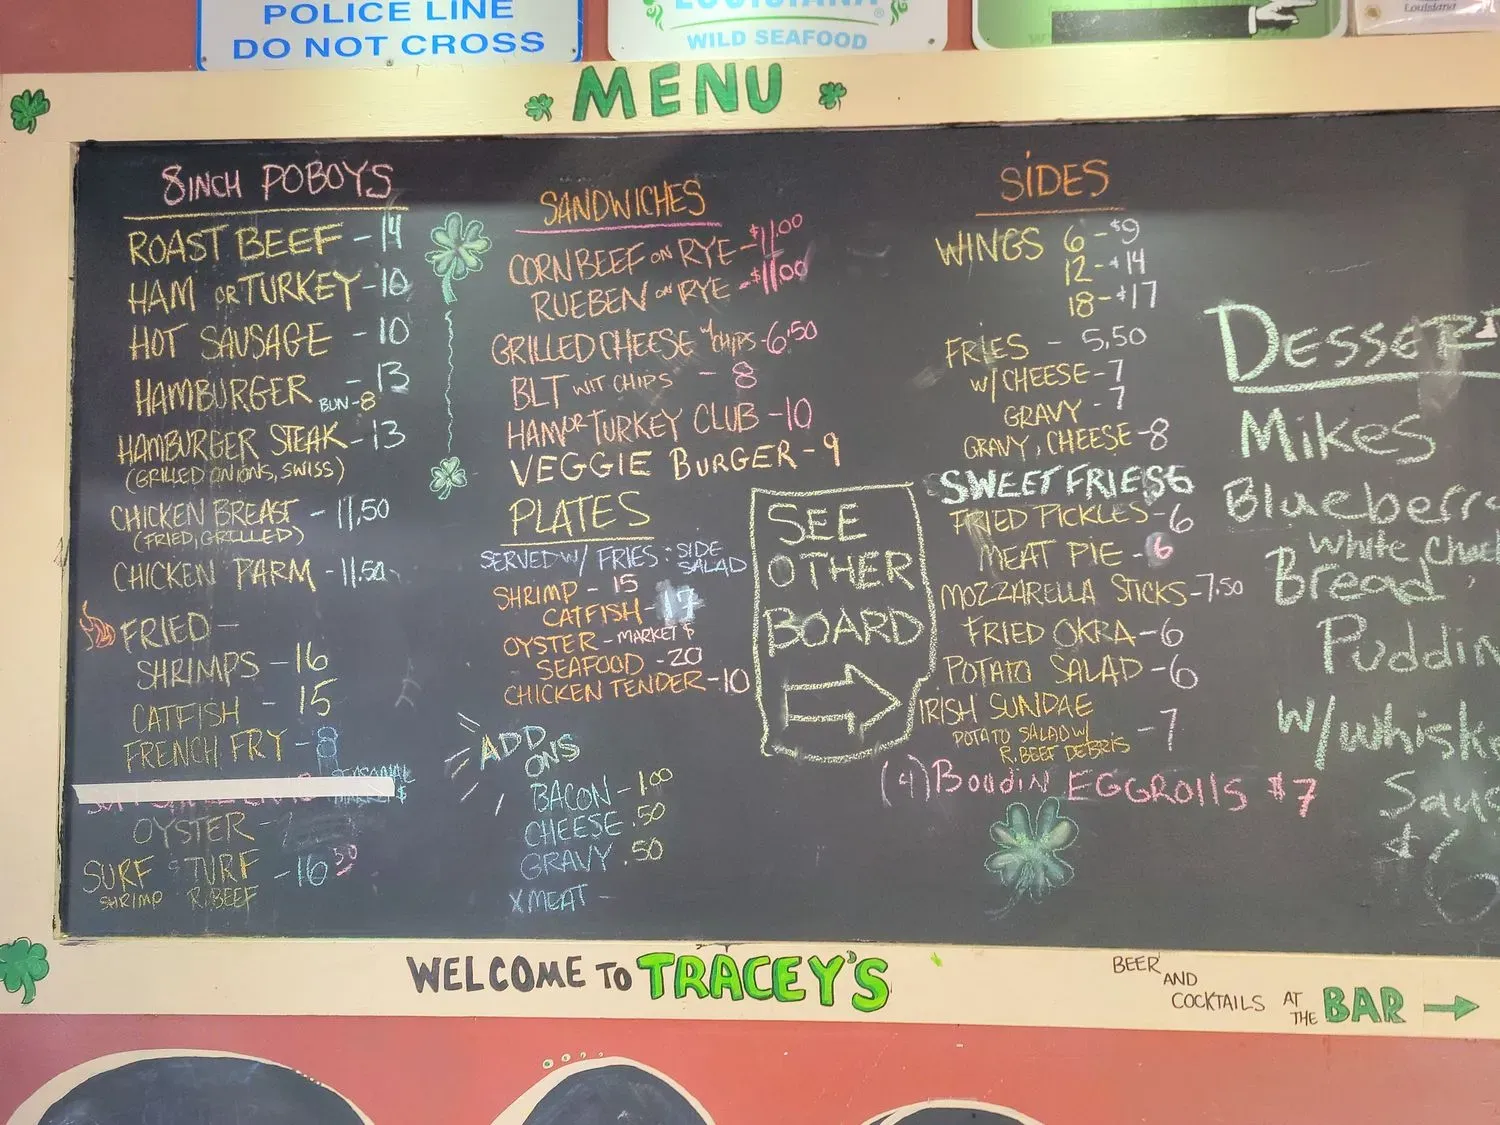 POLICE LINE
DO NOT CROSS
LOUISIANA
®
WILD SEAFOOD
Louisiana
MENU
8INCH POBOYS
ROAST BEEF - 14
HAM OR TURKEY - 10
HOT SAUSAGE - 10
HAMBURGER - 13
BUN - 8
HAMBURGER STEAK - 13
(GRILLED ONIONS, SWISS)
CHICKEN BREAST - 11.50
(FRIED, GRILLED)
CHICKEN PARM - 11.50
FRIED -
SHRIMPS - 16
CATFISH - 15
FRENCH FRY - 8
SEASONAL
MARKET $
OYSTER -
SURF & TURF - 16 50
SHRIMP R. BEEF
SANDWICHES
CORNBEEF ON RYE - $11.00
RUEBEN ON RYE - $11.00
GRILLED CHEESE W/ CHIPS - 6.50
BLT WIT CHIPS - 8
HAM OR TURKEY CLUB - 10
VEGGIE BURGER - 9
PLATES
SERVED W/ FRIES : SIDE
SALAD
SHRIMP - 15
CATFISH - 17
OYSTER - MARKET $
SEAFOOD - 20
CHICKEN TENDER - 10
ADD
ONS
BACON - 1.00
CHEESE .50
GRAVY .50
X MEAT -
SEE
OTHER
BOARD
SIDES
WINGS 6 - $9
12 - $14
18 - $17
FRIES - 5.50
W/ CHEESE - 7
GRAVY - 7
GRAVY, CHEESE - 8
SWEET FRIES 6
FRIED PICKLES - 6
MEAT PIE - 6
MOZZARELLA STICKS - 7.50
FRIED OKRA - 6
POTATO SALAD - 6
IRISH SUNDAE
POTATO SALAD W/
R. BEEF DEBRIS - 7
(4) Boudin EGGROllS $7
DESSERT
Mikes
Blueberry
White Choc
Bread
Puddin
W/ whiske
Sauc
$6
WELCOME TO TRACEY'S
BEER
AND
COCKTAILS AT
THE BAR